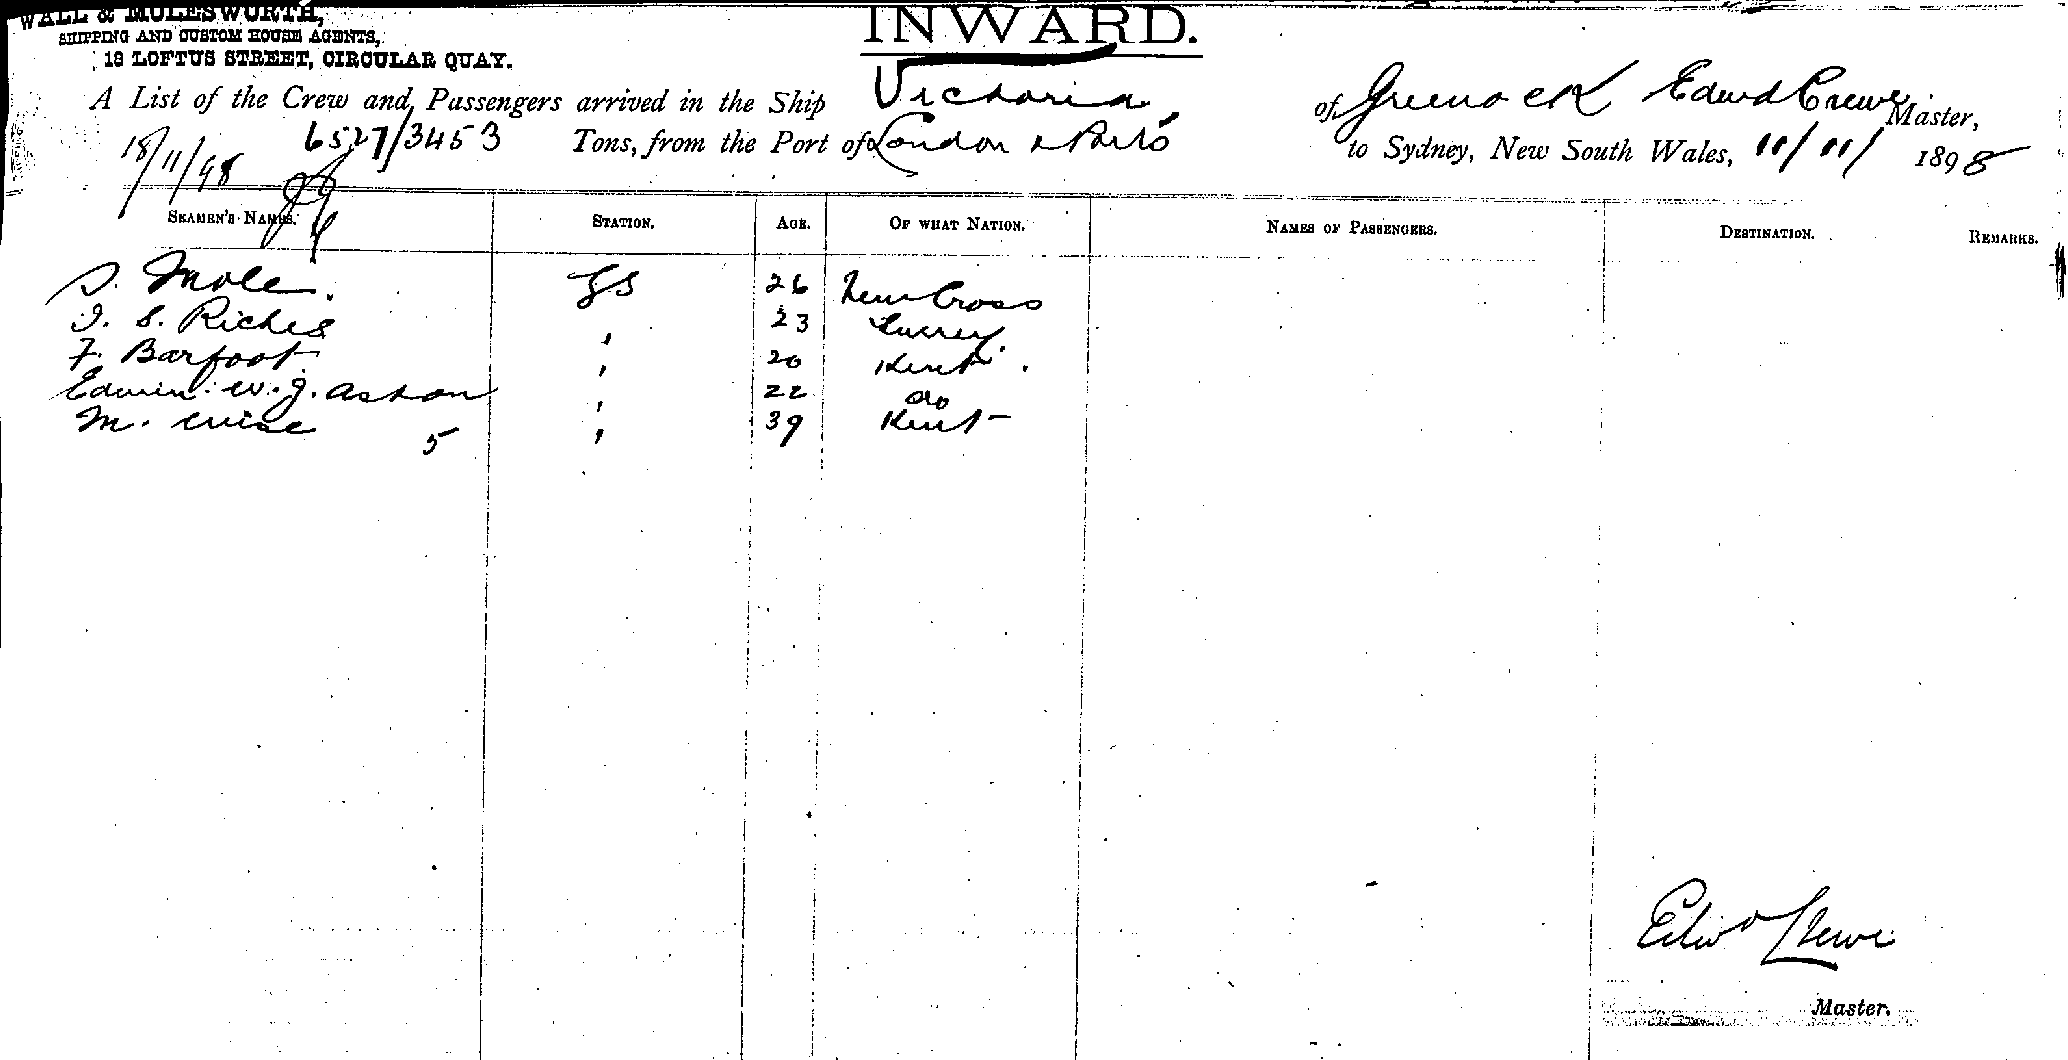 WALL & MOLESWORTH,
SHIPPING AND CUSTOM HOUSE AGENTS,
18 LOFTUS STREET, CIRCULAR QUAY.
INWARD.
A List of the Crew and Passengers arrived in the Ship Victoria of Greenock Edwd Crewe Master,
18/11/98 6527/3453 Tons, from the Port of London & Ports to Sydney, New South Wales, 11/11/ 1898
SEAMEN'S NAMES. STATION. AGE. OF WHAT NATION. NAMES OF PASSENGERS. DESTINATION. REMARKS.
S. Mole. GS 26 New Cross
I. S. Riches " 23 Surrey.
F. Barfoot " 20 Kent.
Edwin W. J. Ashton " 22 do
M. Wise " 39 Kent
5
Edwd Crewe
Master.